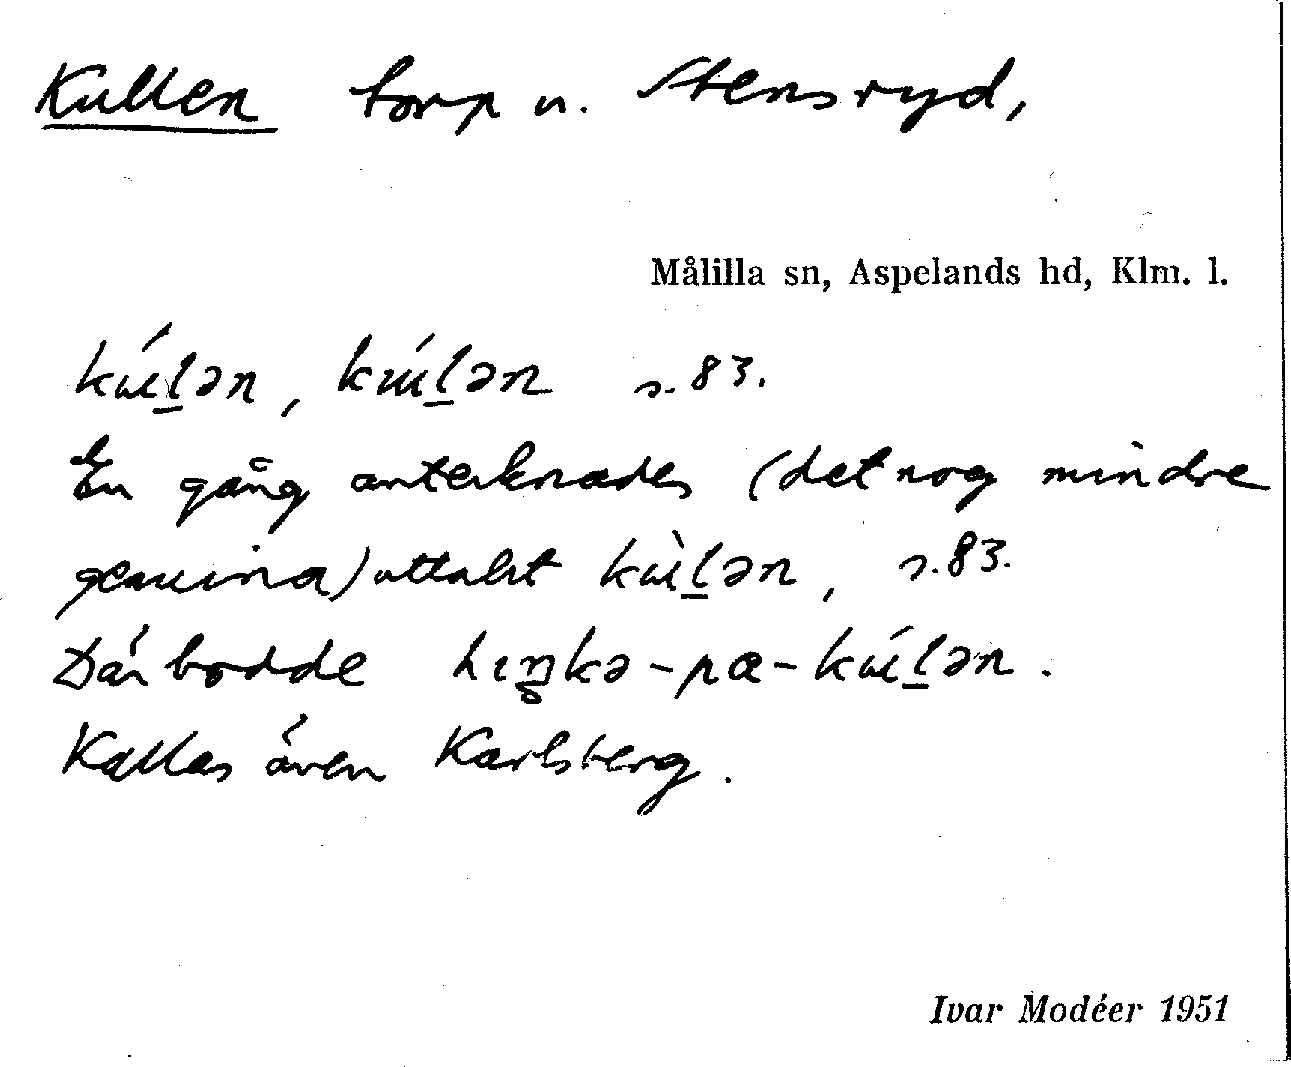 Kullen torp u. Stensryd,
Målilla sn, Aspelands hd, Klm. l.
kúl̲ən, kúl̲ən s. 83.
En gång antecknades (det nog mindre
genuina) uttalet kùl̲ən, s. 83.
Där bodde hɪŋkə-pæ-kúl̲ən.
Kallas även Karlsberg.
Ivar Modéer 1951